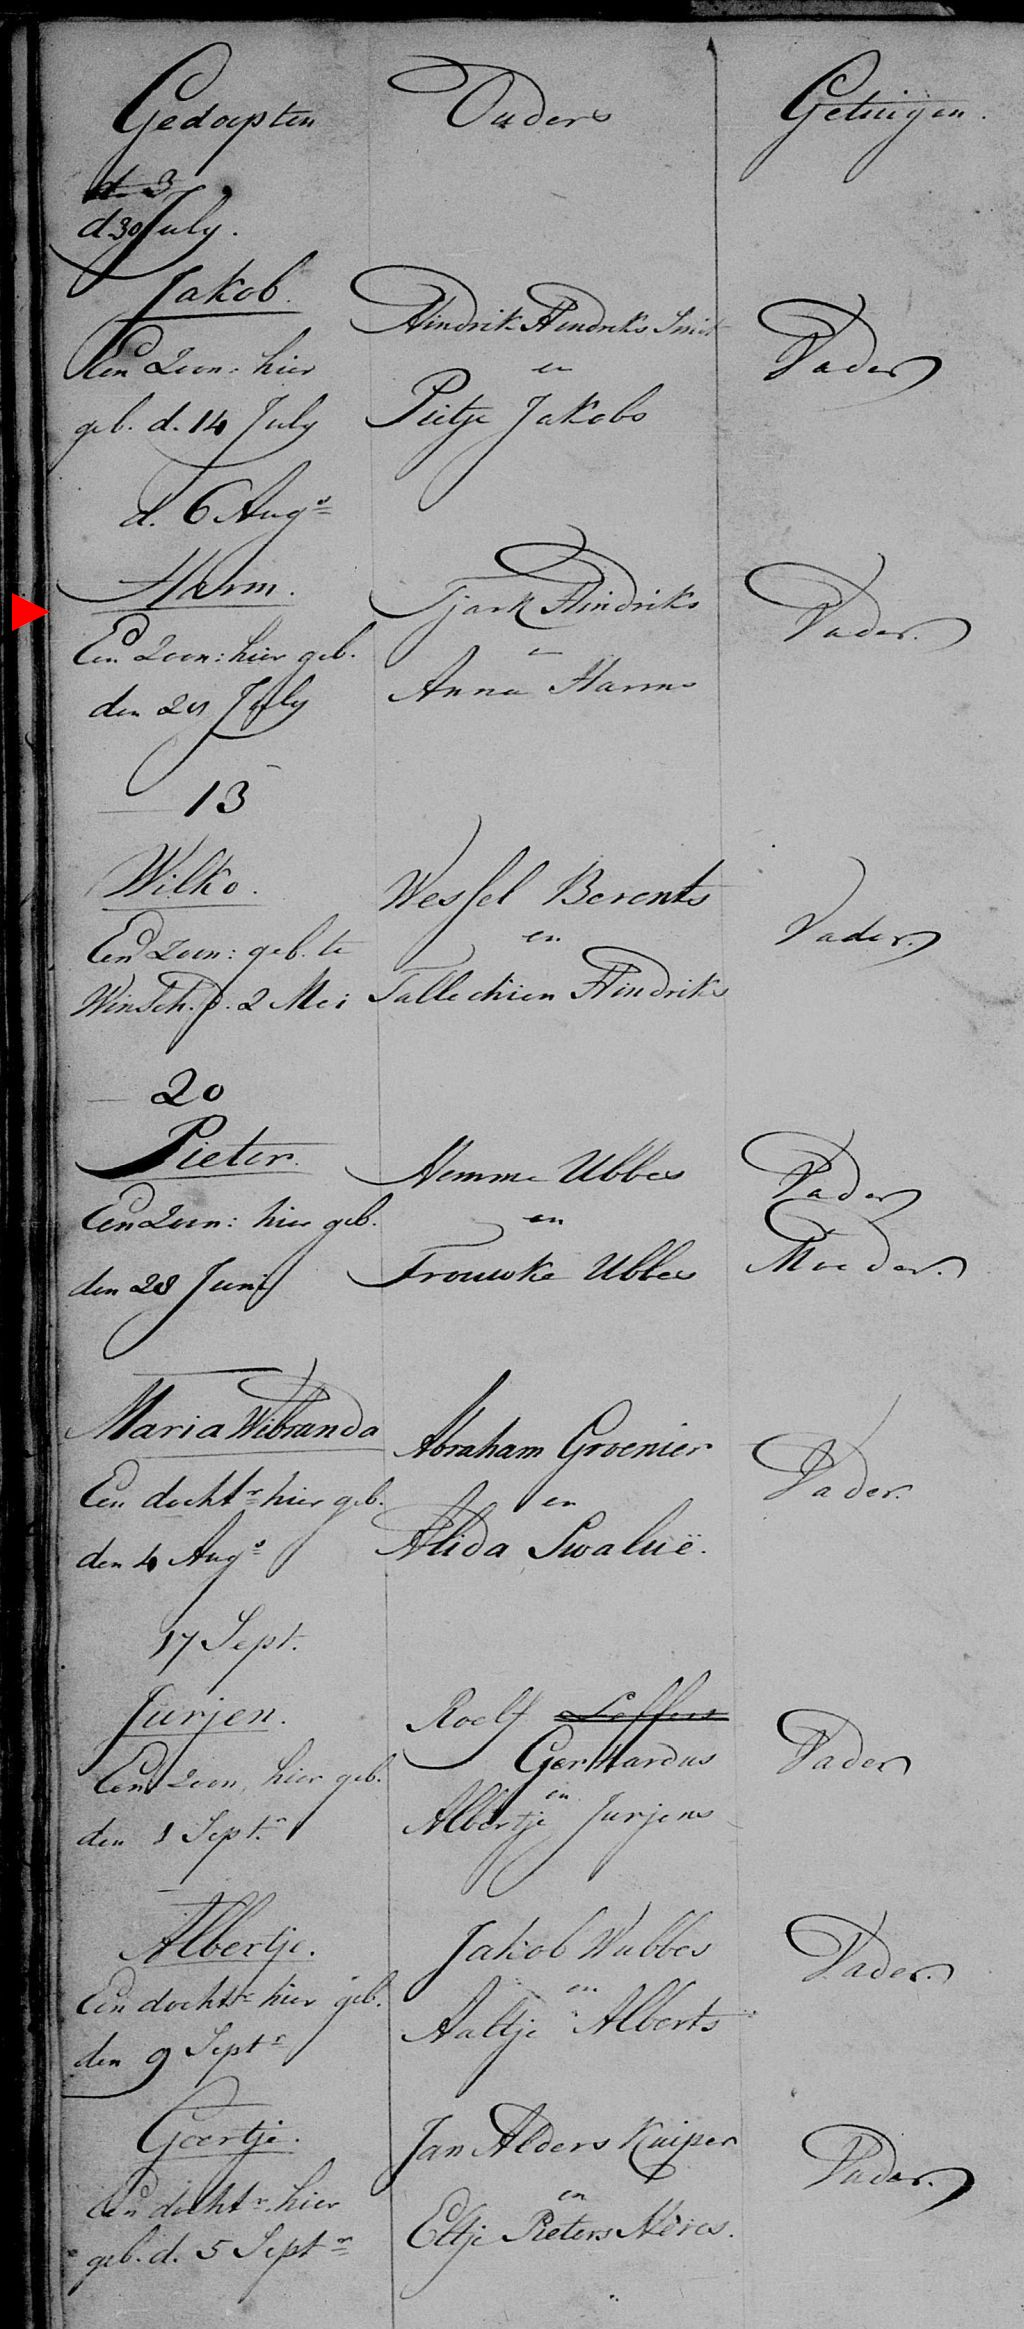 Gedoopten Ouders Getuigen.
d. 3
d 30 July.
Jakob.
Een Zoon: hier
geb. d. 14 July
Hindrik Hendriks Smit
en
Pietje Jakobs
Vader
d. 6 Augs
Harm.
Een Zoon: hier geb.
den 21 July
Tjark Hindriks
en
Anna Harms
Vader.
13
Wilko.
Een Zoon: geb. te
Winsch. d. 2 Mei
Wessel Berents
en
Tallechien Hindriks
Vader.
20
Pieter.
Een Zoon: hier geb.
den 28 Juni
Hemme Ubbes
en
Trouwke Ubbes
Vader
Moeder.
Maria Wibranda
Een dochtr hier geb.
den 4 Augs
Abraham Groenier
en
Alida Swaluë.
Vader.
17 Sept.
Jurjen.
Een Zoon, hier geb.
den 1 Sept.r
Roelf Leffers
Gerhardus
en
Albertje Jurjens
Vader
Albertje.
Een dochtr hier geb.
den 9 Septr
Jakob Wubbes
en
Aaltje Alberts
Vader.
Geertje.
Een dochtr. hier
geb. d. 5 Septr
Jan Alders Kuiper
en
Eltje Pieters
Vader.